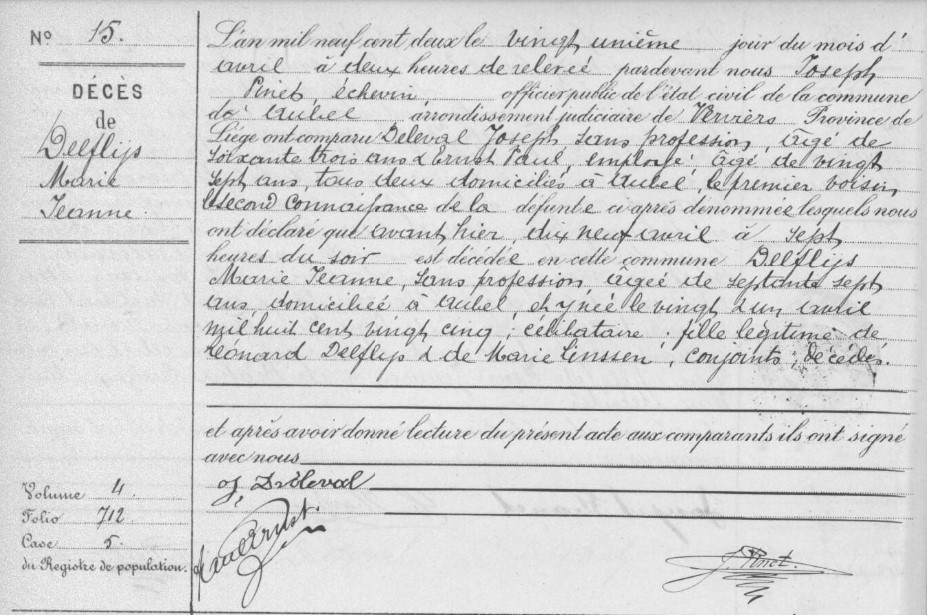 No 15.
DÉCÈS
de
Delflijs
Marie
Jeanne.
Volume 4
Folio 712
Case 5.
du Registre de population.
L'an mil neuf cent deux le vingt unième jour du mois d'
avril à deux heures de relevée pardevant nous Joseph
Pinet échevin, officier public de l'état civil de la commune
de Aubel arrondissement judiciaire de Verviers Province de
Liége ont comparu Deleval Joseph, sans profession, âgé de
soixante trois ans & Ernst Paul, employé, âgé de vingt
sept ans, tous deux domiciliés à Aubel, le premier voisin,
le second connaissance de la défunte ci après dénommée lesquels nous
ont déclaré que avant hier, dix neuf avril à sept
heures du soir est décédée en cette commune Delflijs
Marie Jeanne, sans profession, âgée de septante sept
ans domiciliée à Aubel & y née le vingt & un avril
mil huit cent vingt cinq; célibataire; fille légitime de
Léonard Delflijs & de Marie Linssen, conjoints, décédés.
et après avoir donné lecture du présent acte aux comparants ils ont signé
avec nous
J. Deleval
Paul Ernst.
J. Pinet.